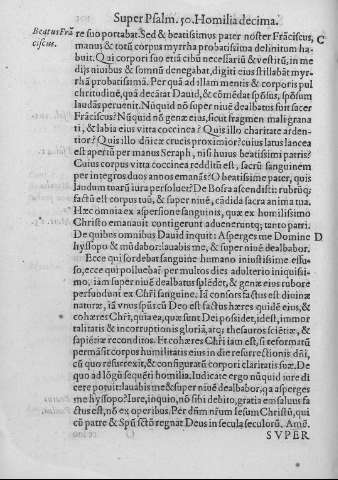 Super Psalm. 50. Homilia decima.
Beatus Frā
ciscus.
re suo portabat. Sed & beatissimus pater noster Frāciscus,
C
manus & totū corpus myrrha probatissima delinitum ha-
buit. Qui corpori suo etiā cibū necessariū & vestitū, in me
dijs niuibus & somnū denegabat, digiti eius stillabāt myr-
rhā probatissimā. Per quā ad illam mentis & corporis pul
chritudinē, quā decātat Dauid, & cōmēdat spōsus, spōsum
laudās peruenit. Nūquid nō super niuē dealbatus fuit sacer
Frāciscus? Nūquid nō genæ eius, sicut fragmen mali grana
ti, & labia eius vitta coccinea? Quis illo charitate arden-
tior? Quis illo dn̄icæ crucis proximior? cuius latus lancea
est apertū per manus Seraph, nisi huius beatissimi patris?
Cuius corpus vitta coccinea reddita est, sacrū sanguinem
per integros duos annos emanās? O beatissime pater, quis
laudum tuarū iura persoluet? De Bosra ascendisti: rubrūq;
factū est corpus tuū, & super niuē, cādida sacra anima tua.
Hæc omnia ex aspersione sanguinis, quæ ex humilissimo
Christo emanauit contigerunt aduenerūtq; tanto patri.
De quibus omnibus Dauid inquit: Asperges me Domine
D
hyssopo & mūdabor: lauabis me, & super niuē dealbabor.
Ecce qui sordebat sanguine humano iniustissime effu-
so, ecce qui polluebat per multos dies adulterio iniquissi-
mo, iam super niuē dealbatus splēdet, & genæ eius rubore
perfundunt ex Chri̅ sanguine. Iā consors factus est diuinæ
naturæ, iā vnus spūs cū Deo est factus hæres quidē eius, &
cohæres Chri̅, quia ea, quæ sunt Dei possidet, id est, immor
talitatis & incorruptionis gloriā, atq; thesauros sciētiæ, &
sapiētiæ reconditos. Et cohæres Chri̅ iam est, si reformatū
permāsit corpus humilitatis eius in die resurrectionis dn̄i,
cū quo resurrexit, & configuratū corpori claritatis suæ. De
quo ad lōgū sequēti homilia. Iudicate ergo nūquid iure di
cere potuit: lauabis me & super niuē dealbabor, qa asperges
me hyssopo? Iure, inquio, nō sibi debito, gratia em saluus fa
ctus est, nō ex operibus. Per dn̄m nr̄um Iesum Christū, qui
cū patre & Spū sctō regnat Deus in secula seculorū. Amē.
SVPER